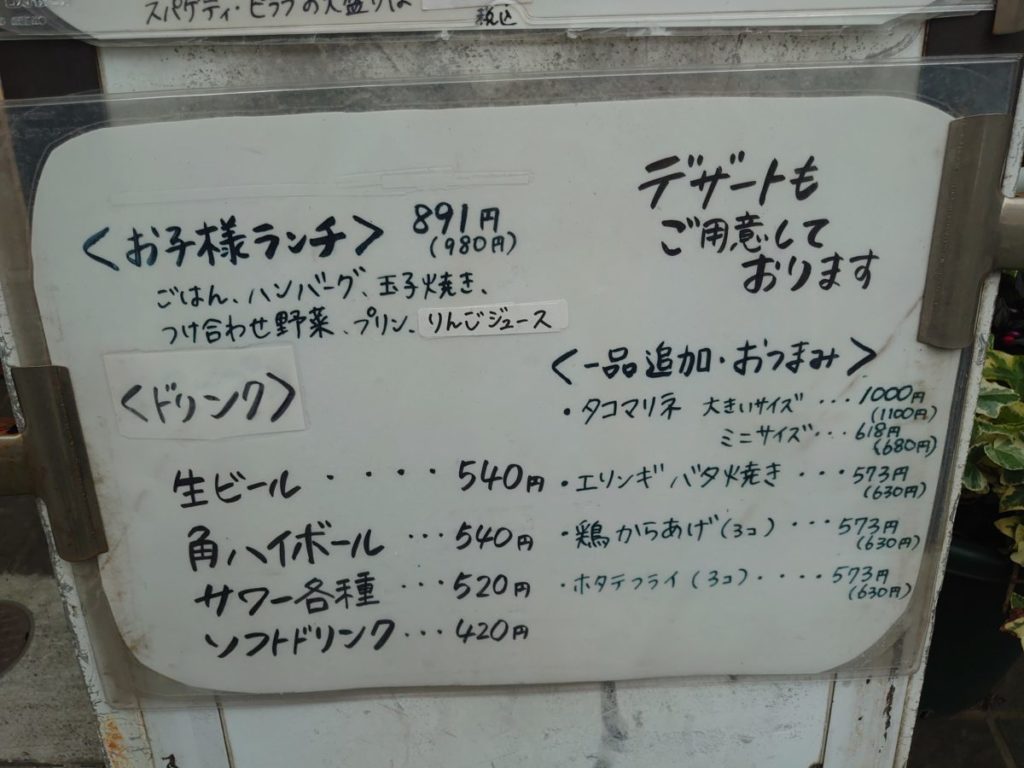 スパゲティ・ピラフの大盛りは
税込
<お子様ランチ> 891円
(980円)
ごはん、ハンバーグ、玉子焼き、
つけ合わせ野菜、プリン、りんごジュース
デザートも
ご用意して
おります
<ドリンク>
生ビール ・・・・ 540円
角ハイボール ・・・540円
サワー各種 ・・・520円
ソフトドリンク・・・420円
<一品追加・おつまみ>
・タコマリネ 大きいサイズ ・・・1000円
(1100円)
ミニサイズ・・・618円
(680円)
・エリンギバタ焼き ・・・573円
(630円)
・鶏からあげ(3コ) ・・・573円
(630円)
・ホタテフライ(3コ)・・・・573円
(630円)